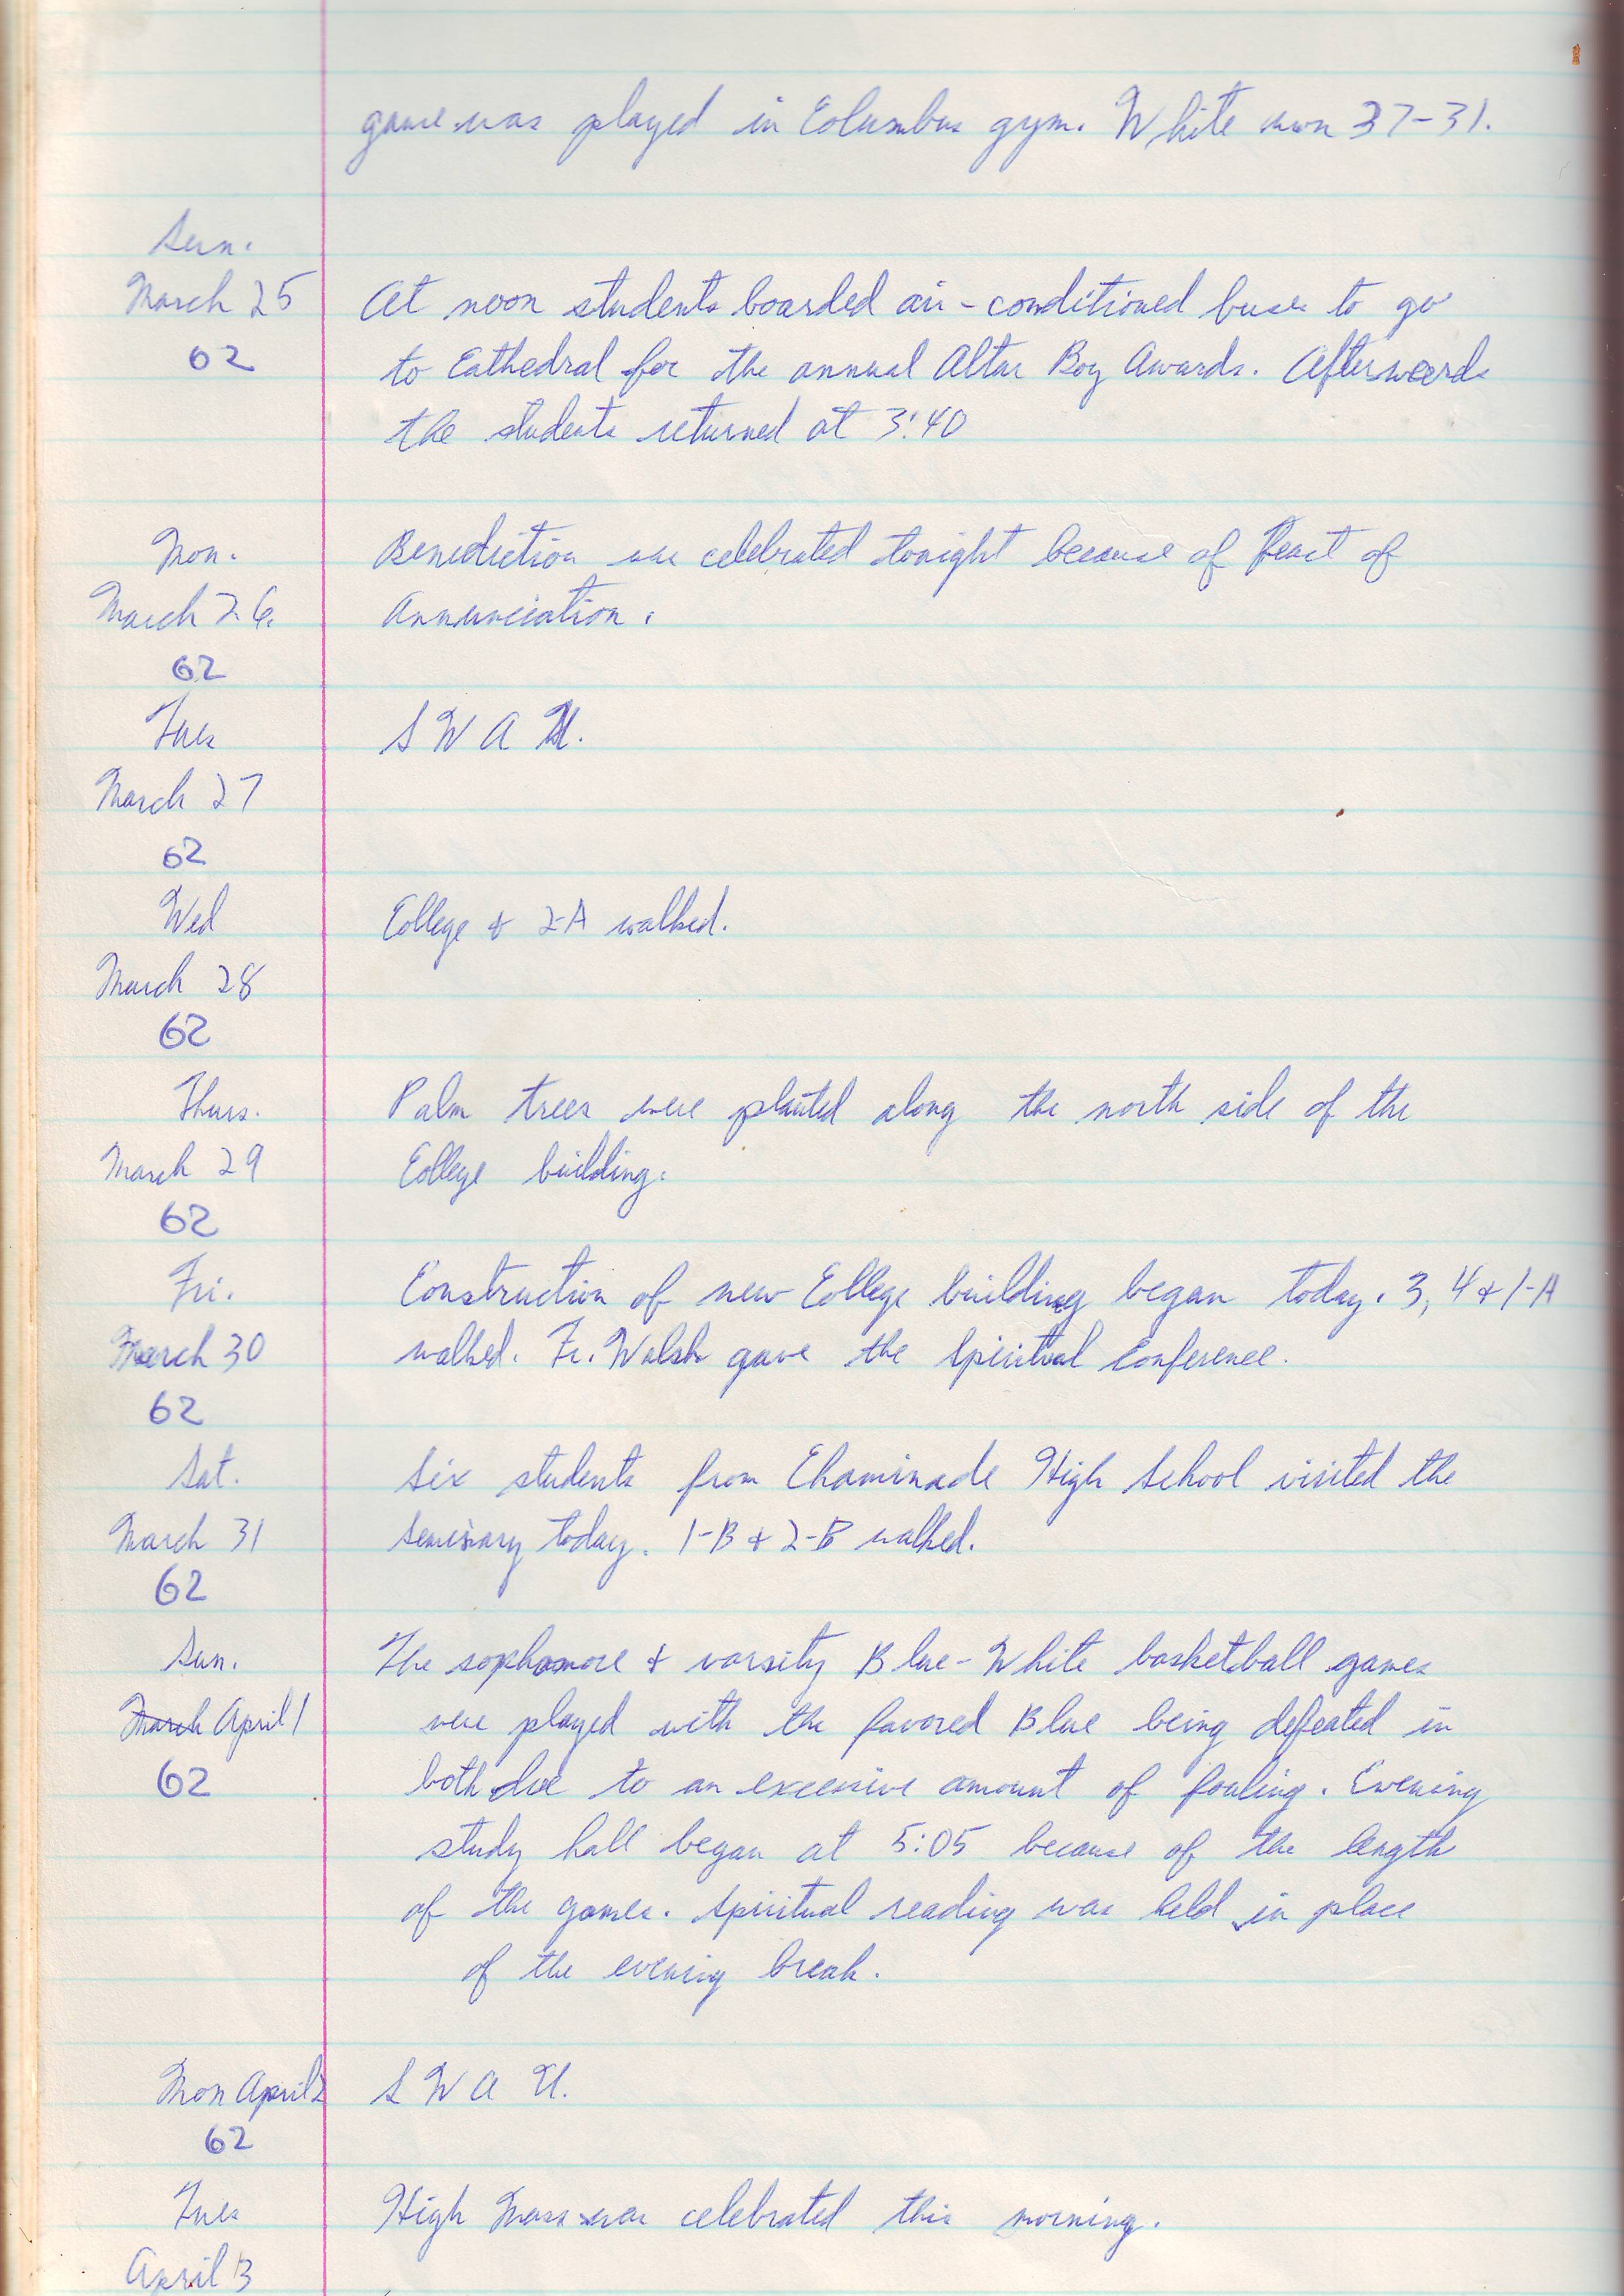 game was played in Columbus gym. White won 37-31.
Sun.
March 25
62
At noon students boarded air-conditioned buses to go
to Cathedral for the annual Altar Boy Awards. Afterwards
the students returned at 3:40
Mon.
March 26.
62
Benediction was celebrated tonight because of Feast of
Annunciation.
Tues
March 27
62
S W A U.
Wed
March 28
62
College & 2-A walked.
Thurs.
March 29
62
Palm trees were planted along the north side of the
College building.
Fri.
March 30
62
Construction of new College building began today. 3, 4 & 1-A
walked. Fr. Walsh gave the Spiritual Conference.
Sat.
March 31
62
Six students from Chaminade High School visited the
Seminary today. 1-B & 2-B walked.
Sun.
March April 1
62
The sophomore & varsity Blue-White basketball games
were played with the favored Blue being defeated in
both due to an excessive amount of fouling. Evening
study hall began at 5:05 because of the length
of the games. Spiritual reading was held in place
of the evening break.
Mon April 2
62
S W A U.
Tues
April 3
High Mass was celebrated this morning.